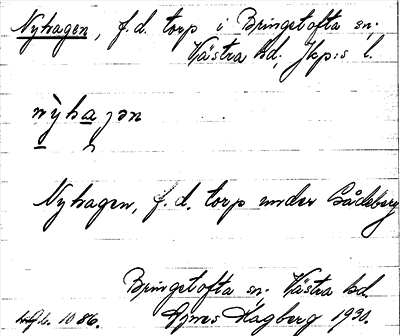 Nyhagen, f.d. torp i Bringetofta sn.
Västra hd, Jkp:s l.
nỳhaɟən
Nyhagen, f. d. torp under Bådeberg
Bringetofta sn. Västra hd.
1086. Agnes Hagberg 1930.